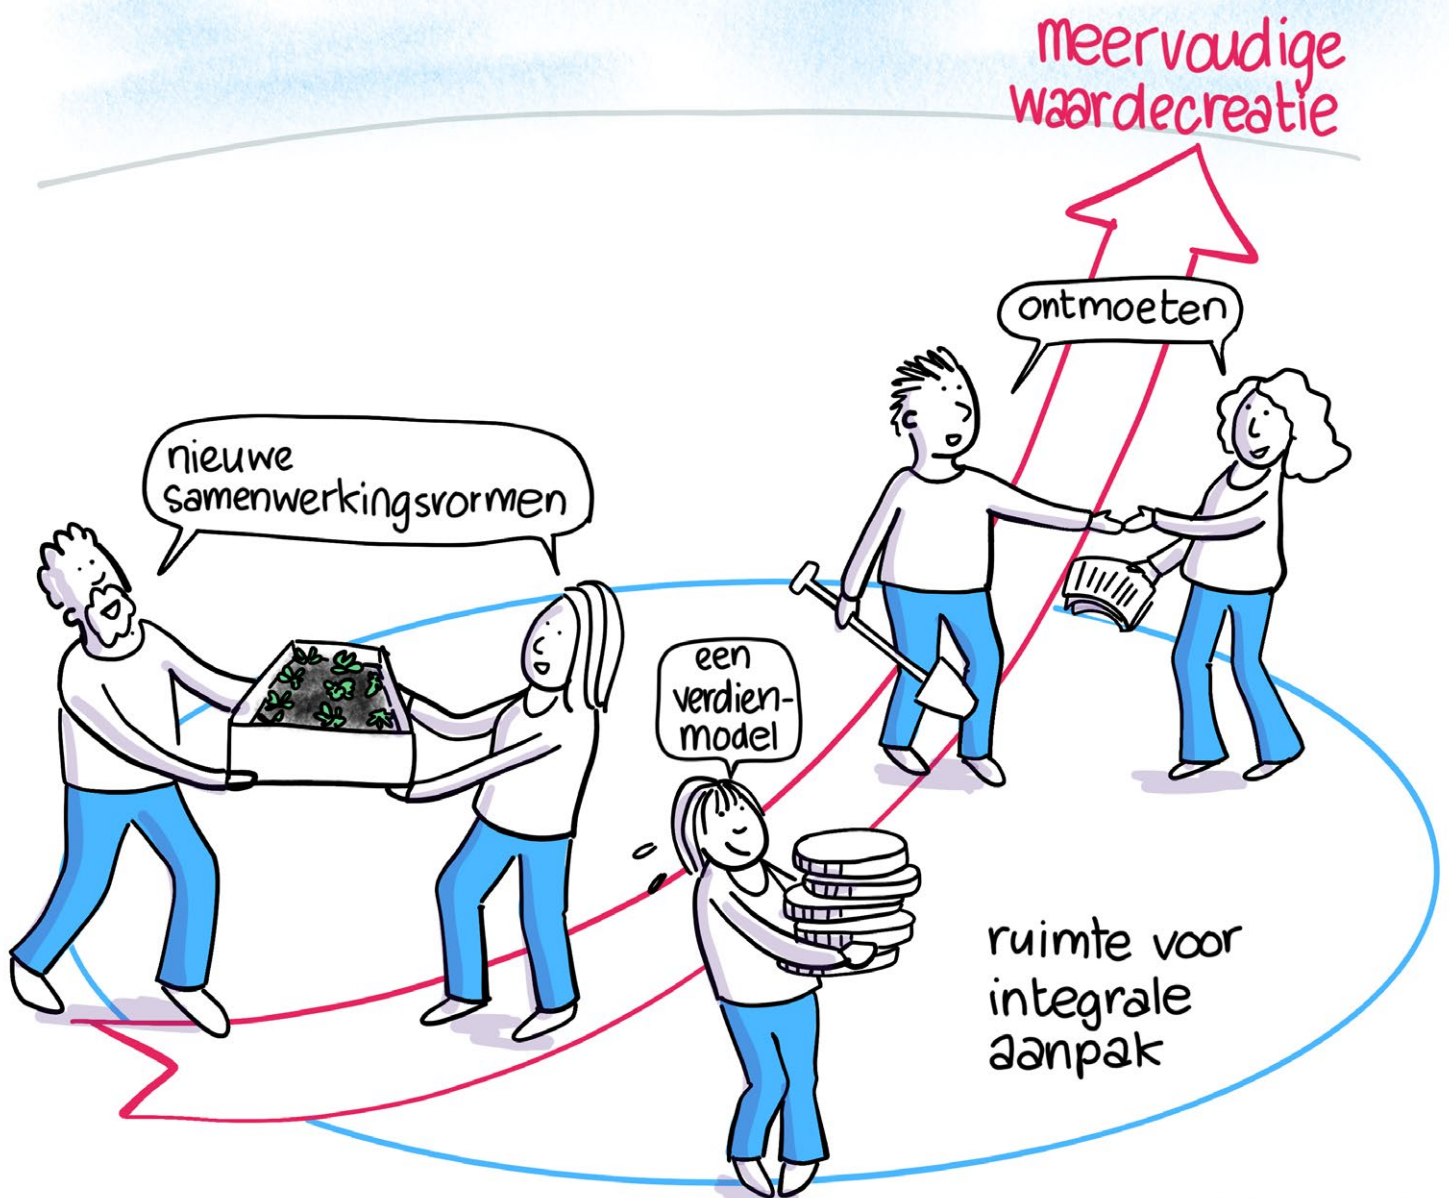 meervoudige
waardecreatie
ontmoeten
nieuwe
samenwerkingsvormen
een
verdien-
model
ruimte voor
integrale
aanpak